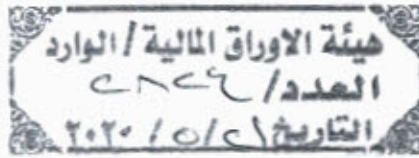 هيئة الاوراق المالية / الوارد
العدد/ ٢٨٢٤
التاريخ ٢١/٥/٢٠٢٠